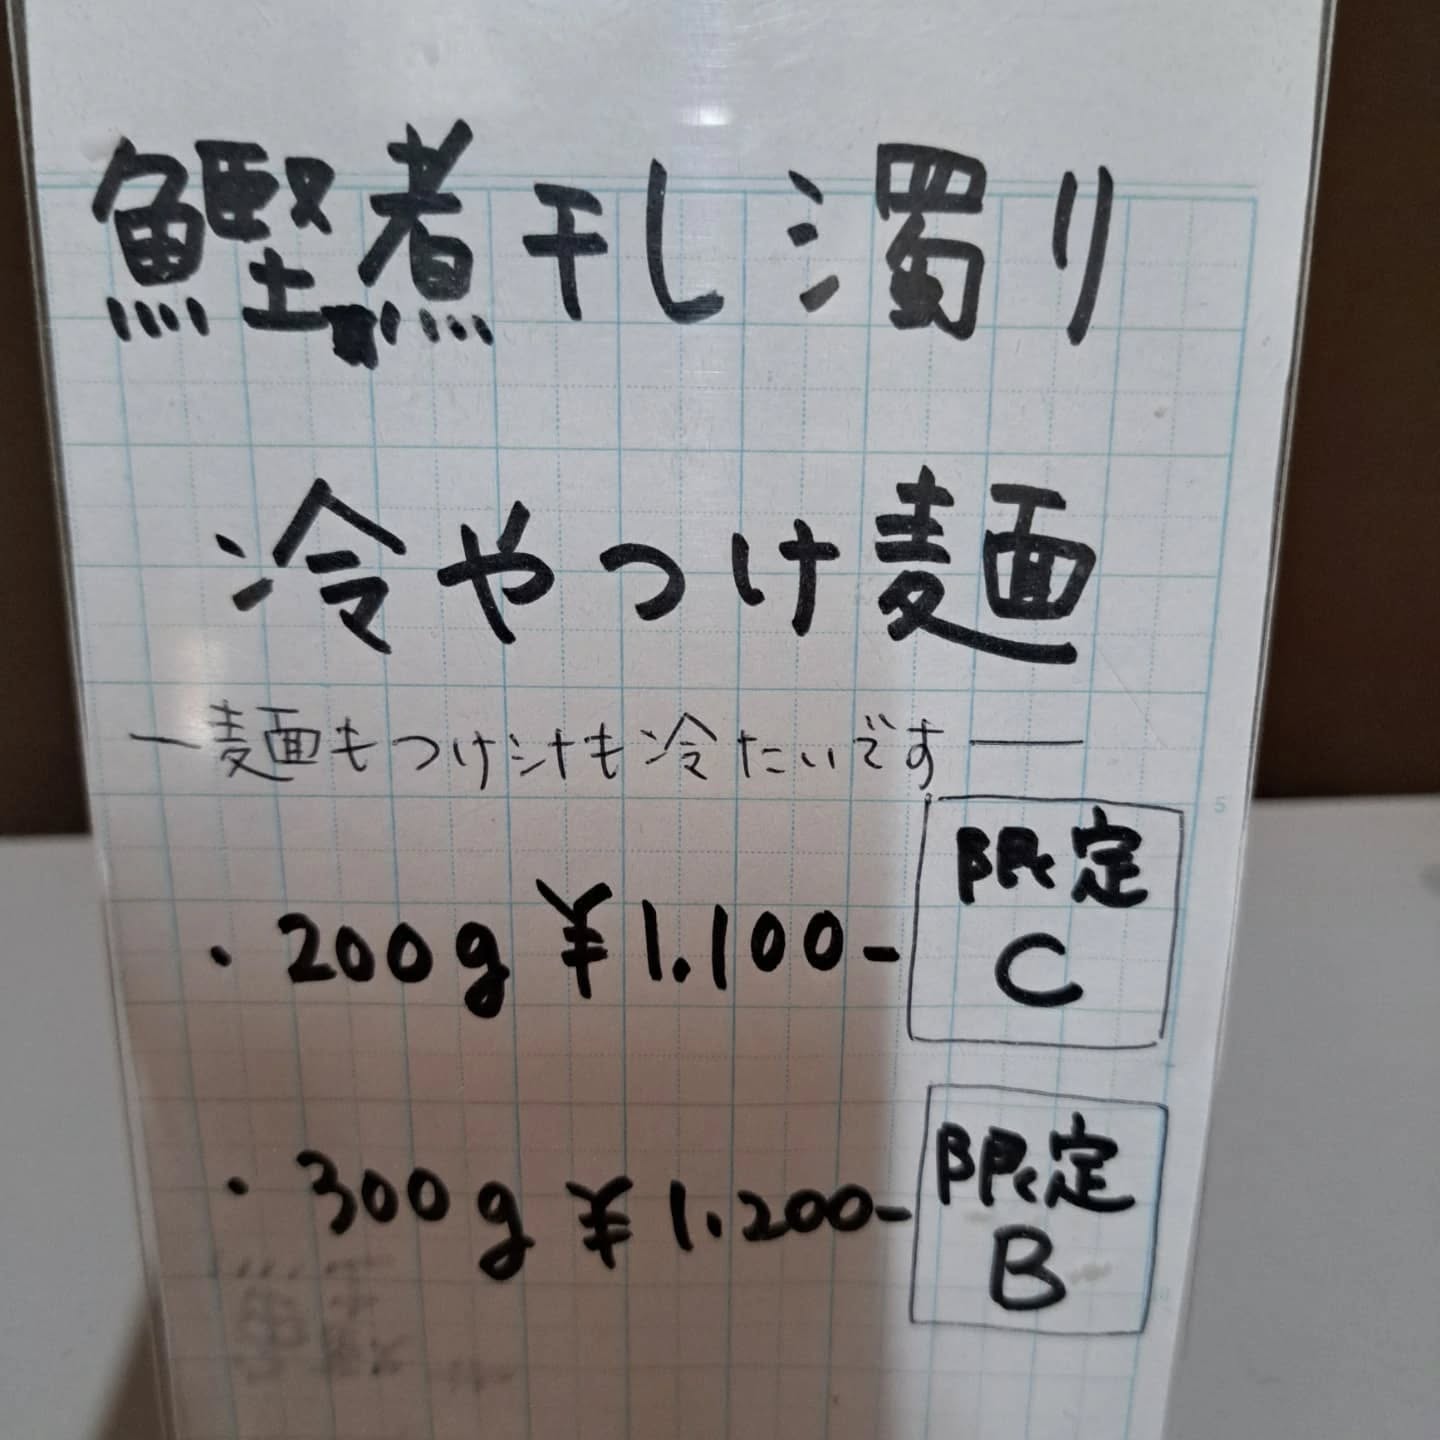 鰹煮干し濁り
冷やつけ麺
ー麺もつけ汁も冷たいです ー
・200g ¥1.100-
限定
C
・300g ¥1.200-
限定
B